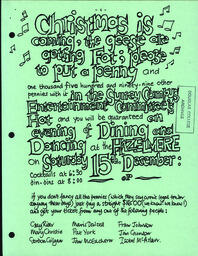 Christmas is
coming, the geese are
getting Fat; please
to put a penny and
one thousand five hundred and ninety-nine other
pennies with it in the Surrey Campus
Entertainment Committee's
Hat and you will be guaranteed an
evening of Dining and
Dancing at the HAZELMERE
on Saturday 15th December:
Cocktails at 6:30
Din-dins at 8:00
if you don't fancy all the pennies (which they say aren't legal tender
anyway these days) just pay a straight $16.00 (we know we know!)
and get your tickets from any one of the following people:
Gary Rider Marie Dalzell Fran Johnson
Mary Christie Pat York Jan Gunster
Gordon Gilgan Jean McEachern Isabel McAslan.
DOUGLAS COLLEGE
ARCHIVES